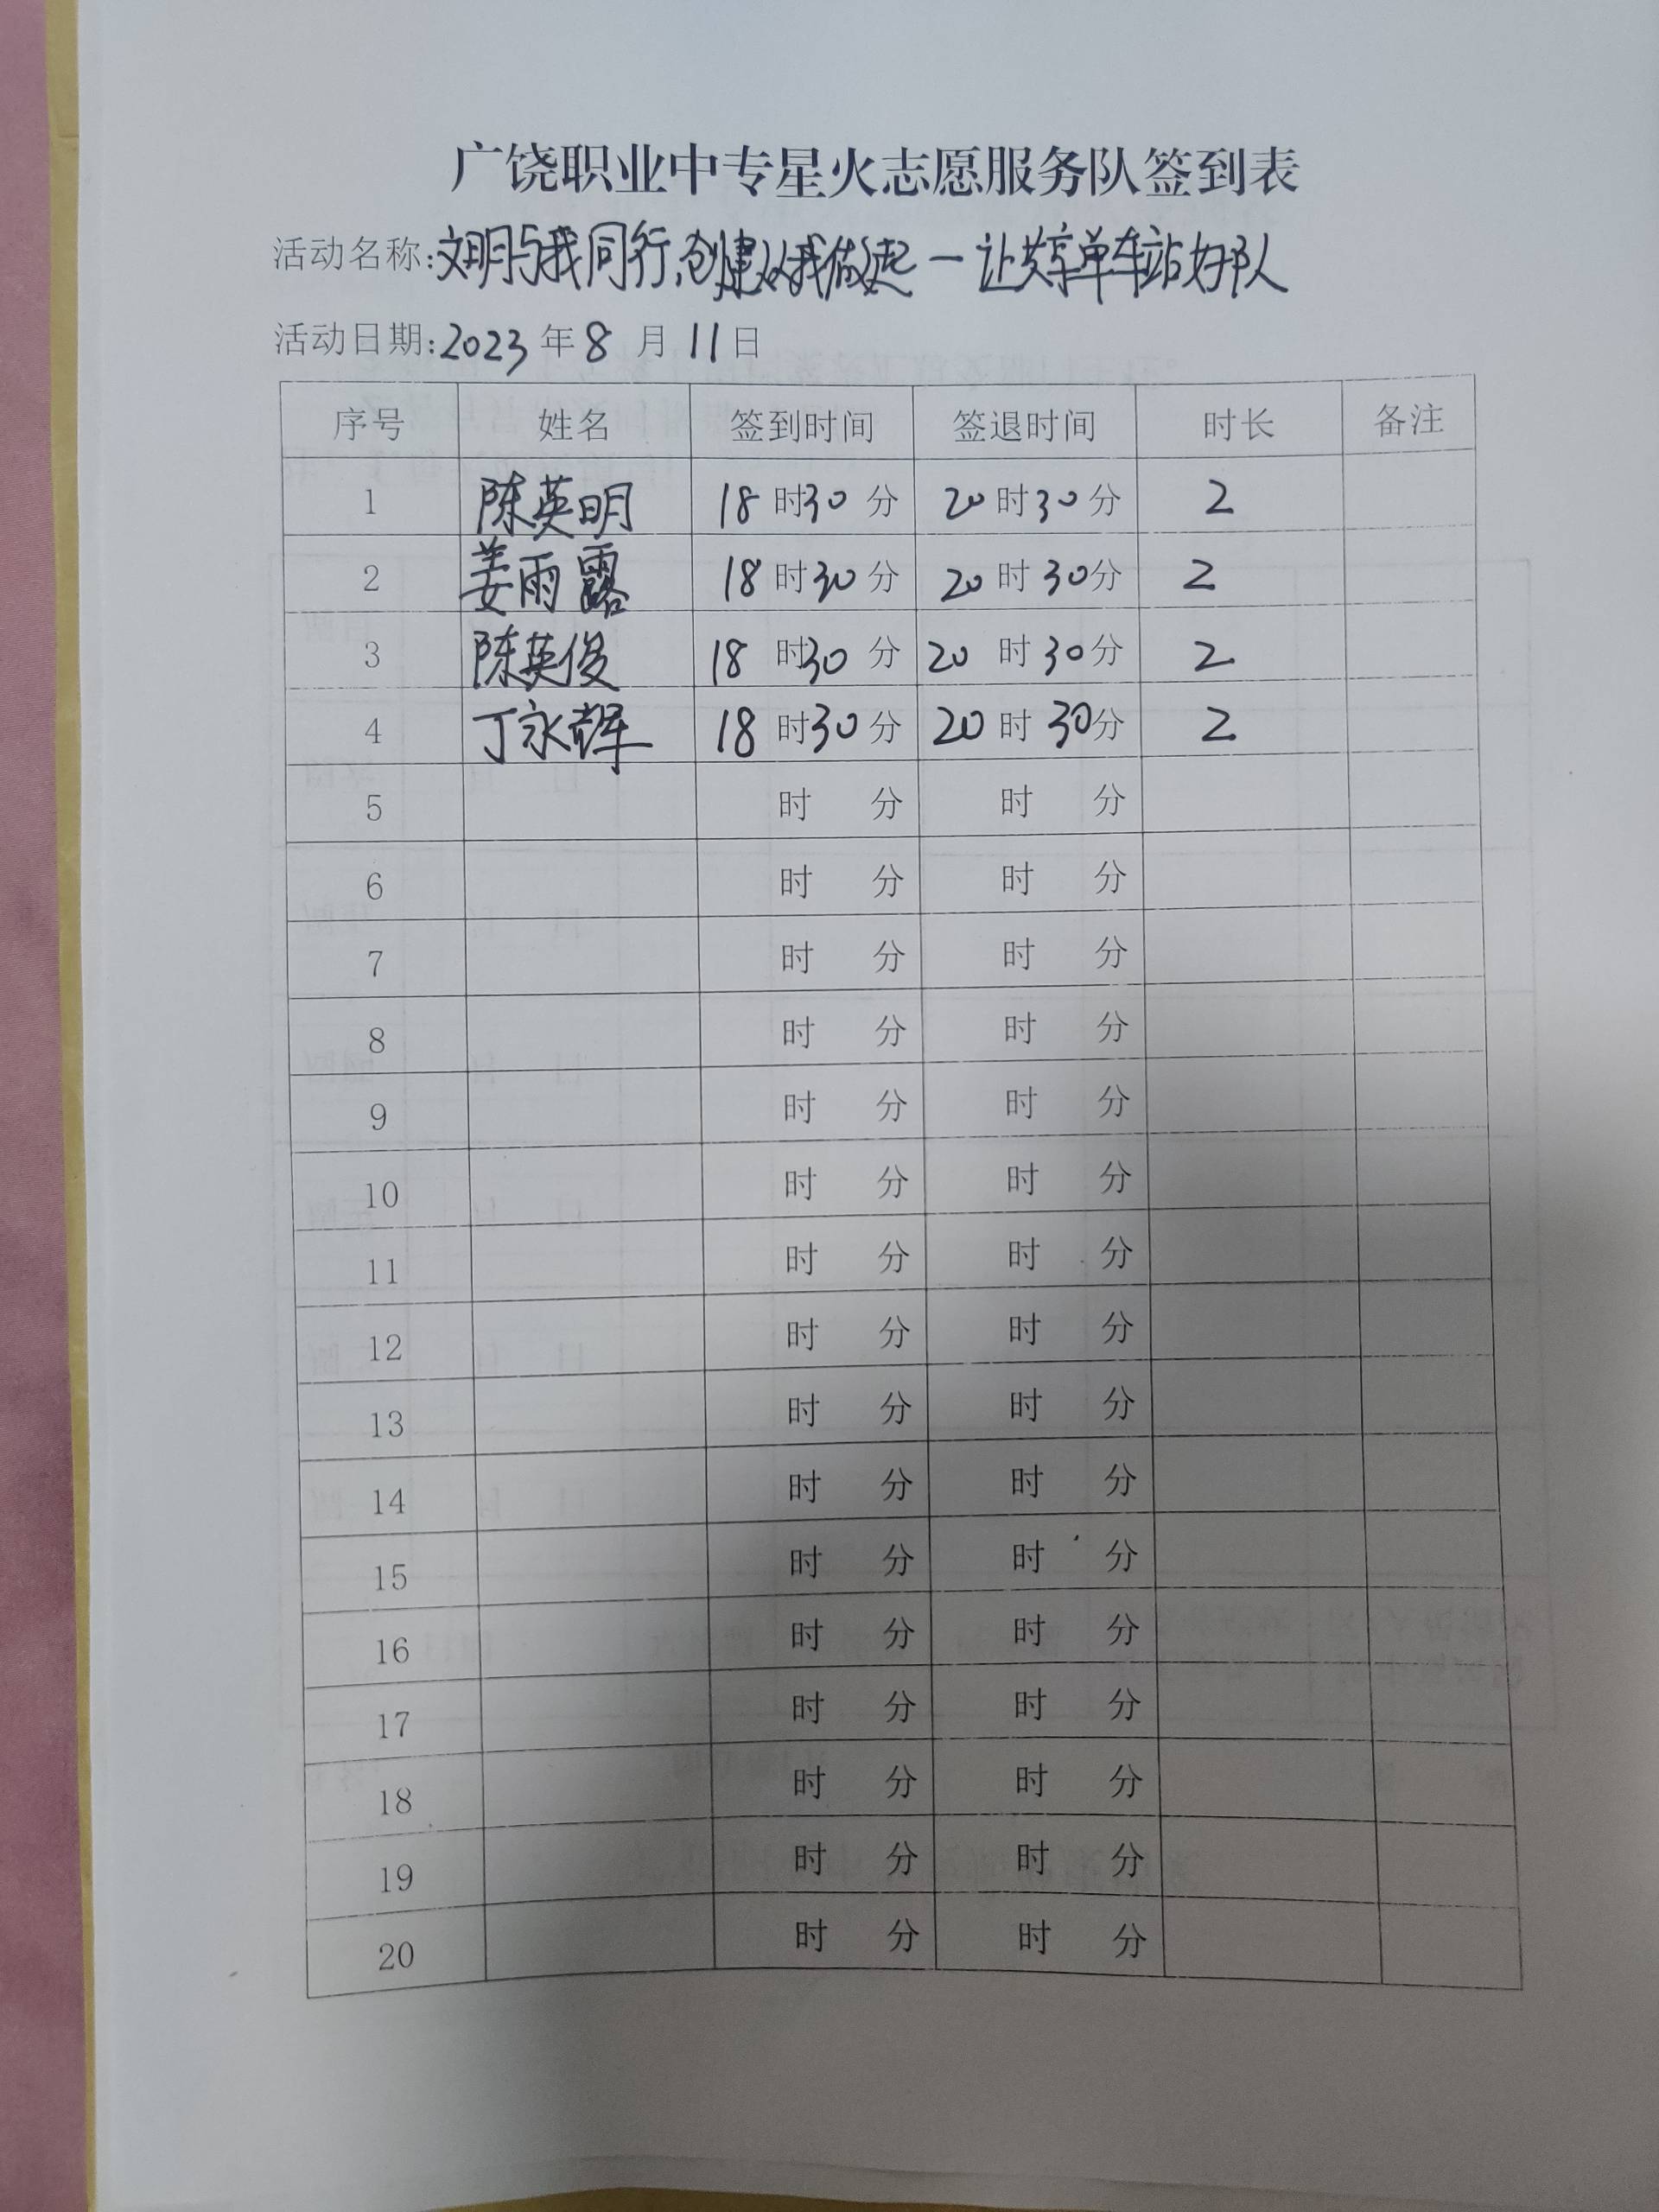 广饶职业中专星火志愿服务队签到表
活动名称:文明与我同行,创建从我做起一让共享单车站好队
活动日期:2023年8月11日
序号 姓名 签到时间 签退时间 时长 备注
1 陈英明 18时30分 20时30分 2
2 姜雨露 18时30分 20时30分 2
3 陈英俊 18时30分 20时30分 2
4 丁永辉 18时30分 20时30分 2
5 时 分 时 分
6 时 分 时 分
7 时 分 时 分
8 时 分 时 分
9 时 分 时 分
10 时 分 时 分
11 时 分 时 分
12 时 分 时 分
13 时 分 时 分
14 时 分 时 分
15 时 分 时 分
16 时 分 时 分
17 时 分 时 分
18 时 分 时 分
19 时 分 时 分
20 时 分 时 分